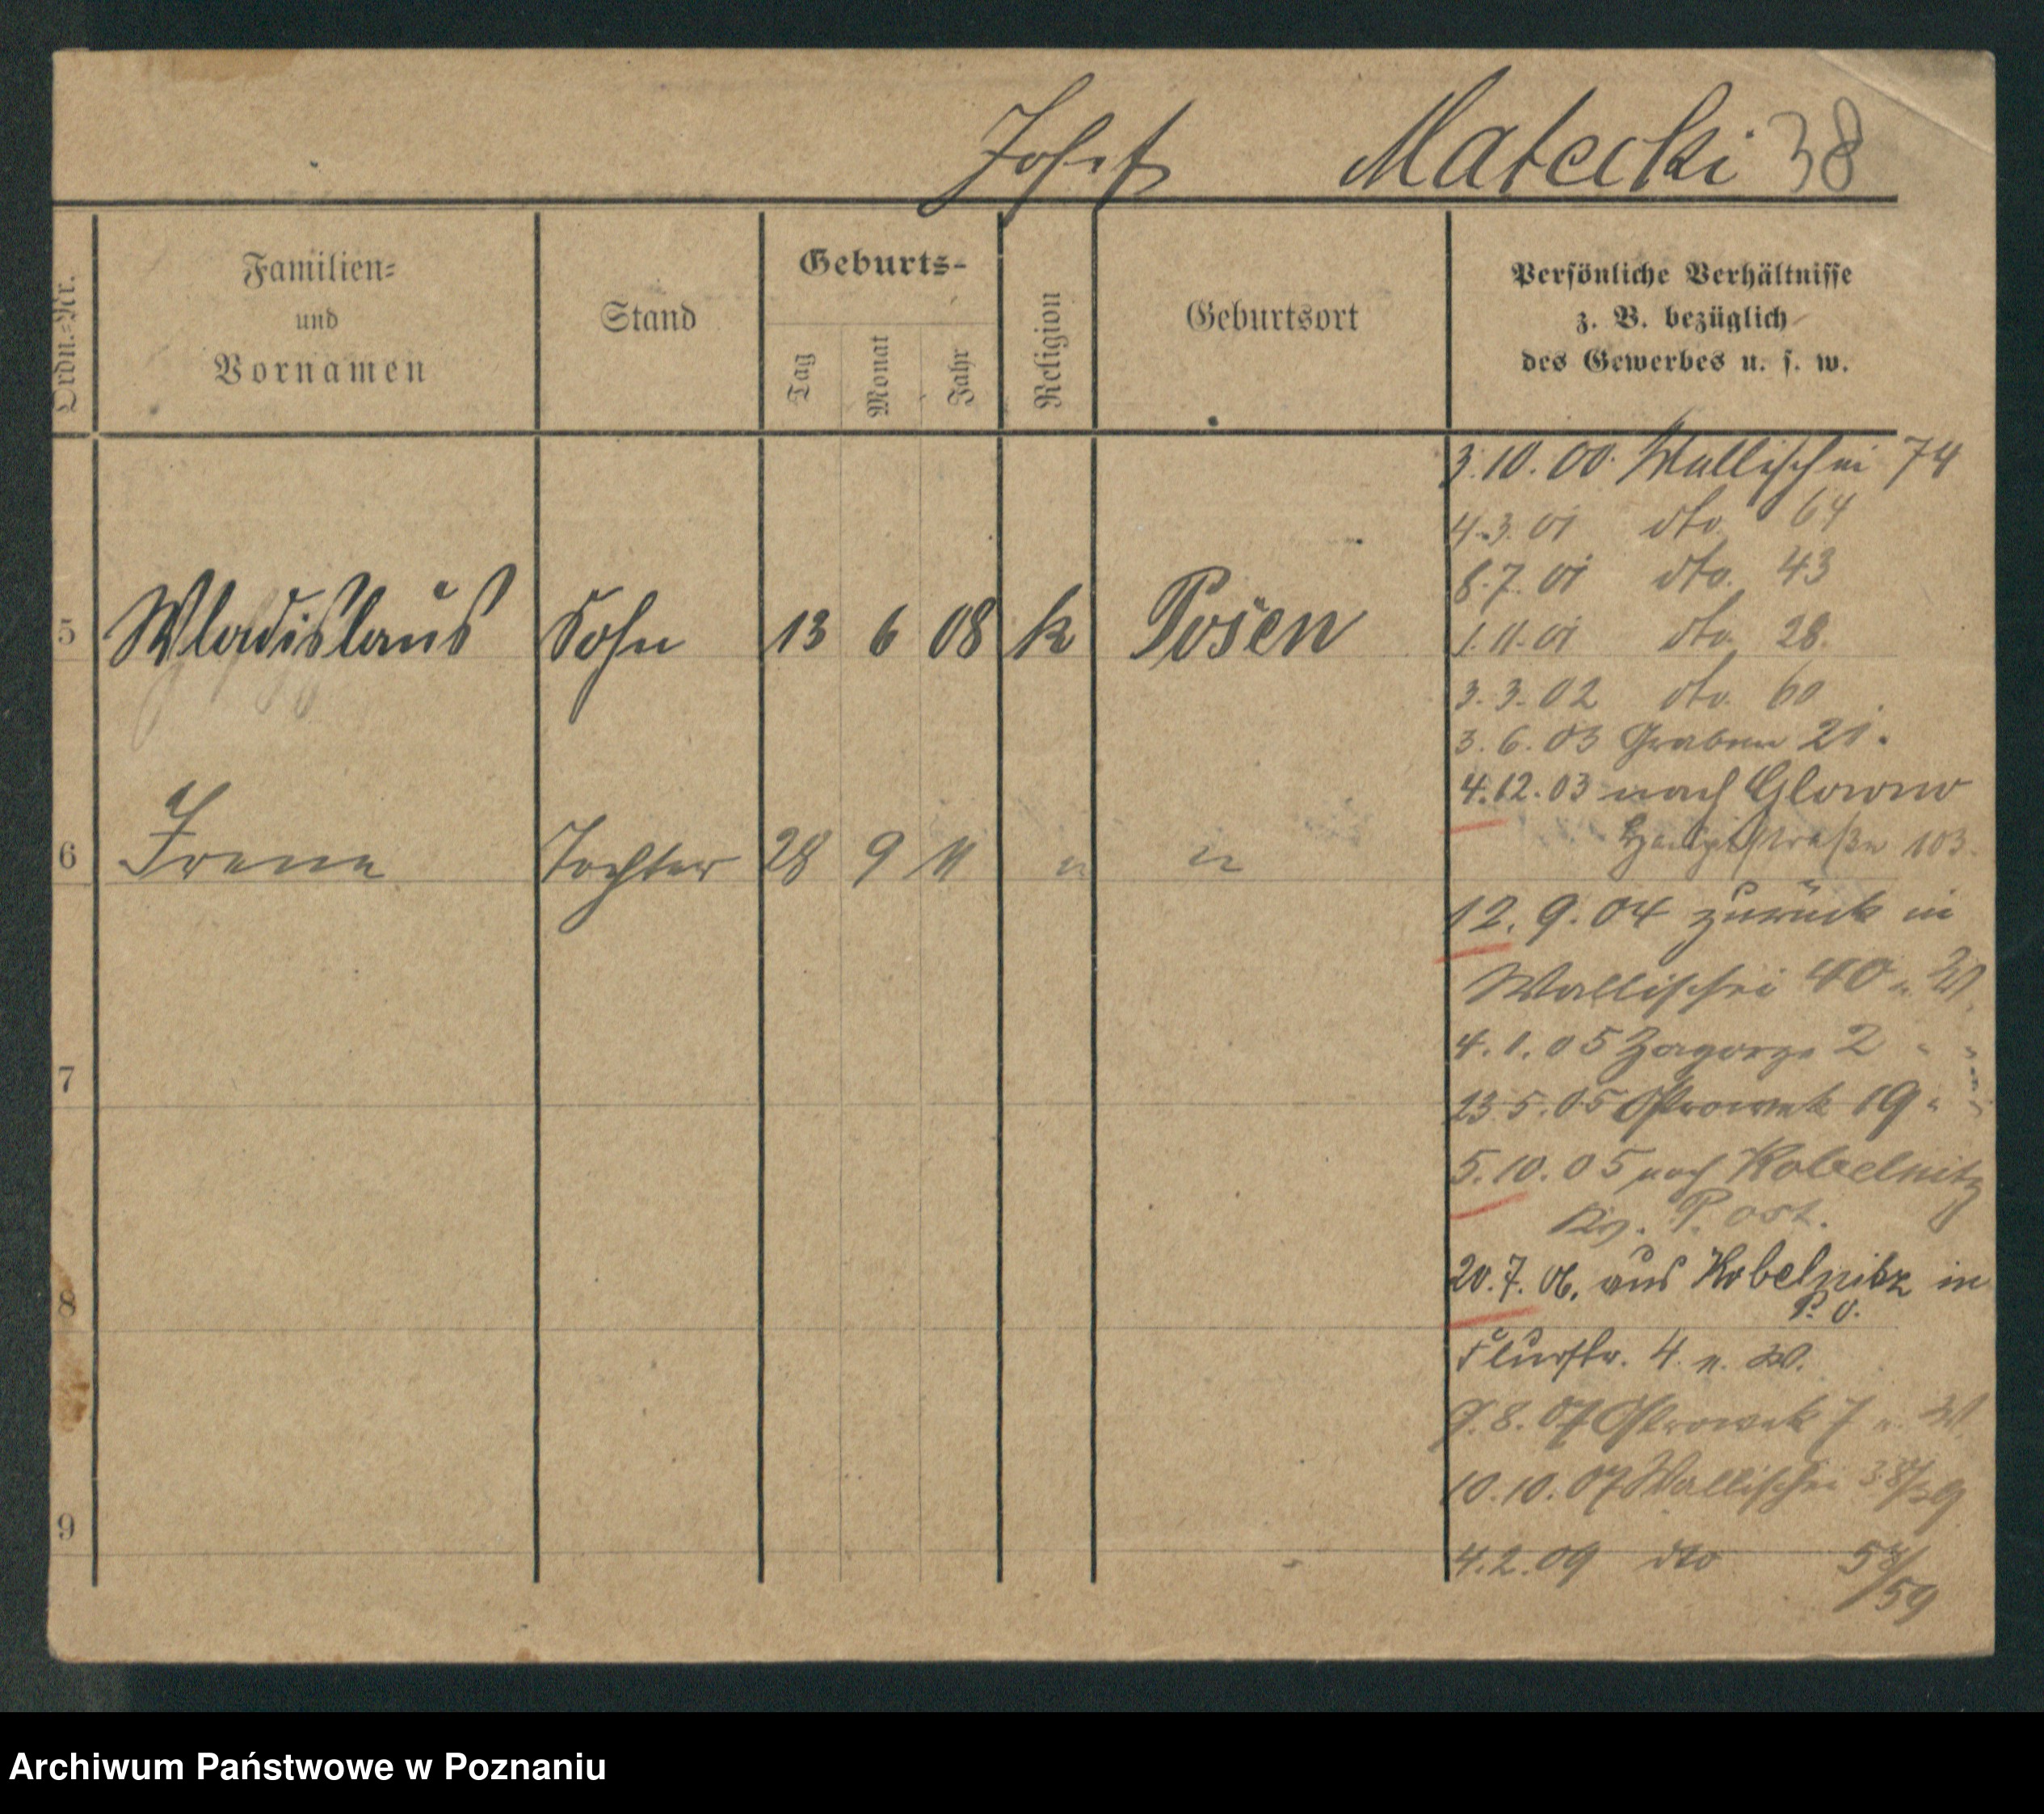 Josef Matecki 38
Ordn.-Nr.
Familien-
und
Vornamen
Stand
Geburts-
Tag
Monat
Jahr
Religion
Geburtsort
Persönliche Verhältnisse
z. B. bezüglich
des Gewerbes u. s. w.
3.10.00. Wallischei 74
4.3.01 dto. 64
8.7.01 dto. 43
5 Wladislaus Sohn 13 6 08 k Posen
1.11.01 dto. 28.
3.3.02 dto. 60
3.6.03 Graben 21.
4.12.03 nach Glowno
6 Irene Tochter 28 9 11 " "
Hauptstraße 103.
12.9.04 zurück in
Wallischei 40 n. W.
4.1.05 Zagorze 2 " "
7
23.5.05 Ostrowek 19 " "
5.10.05 nach Kobelnitz
P. Ost.
20.7.06. aus Kobelnitz in
P. O.
8
Flurstr. 4 n. W.
9.8.07 Ostrowek 7 n. W.
10.10.07 Wallischei 38/39
9
4.2.09 dto 58/59
Archiwum Państwowe w Poznaniu